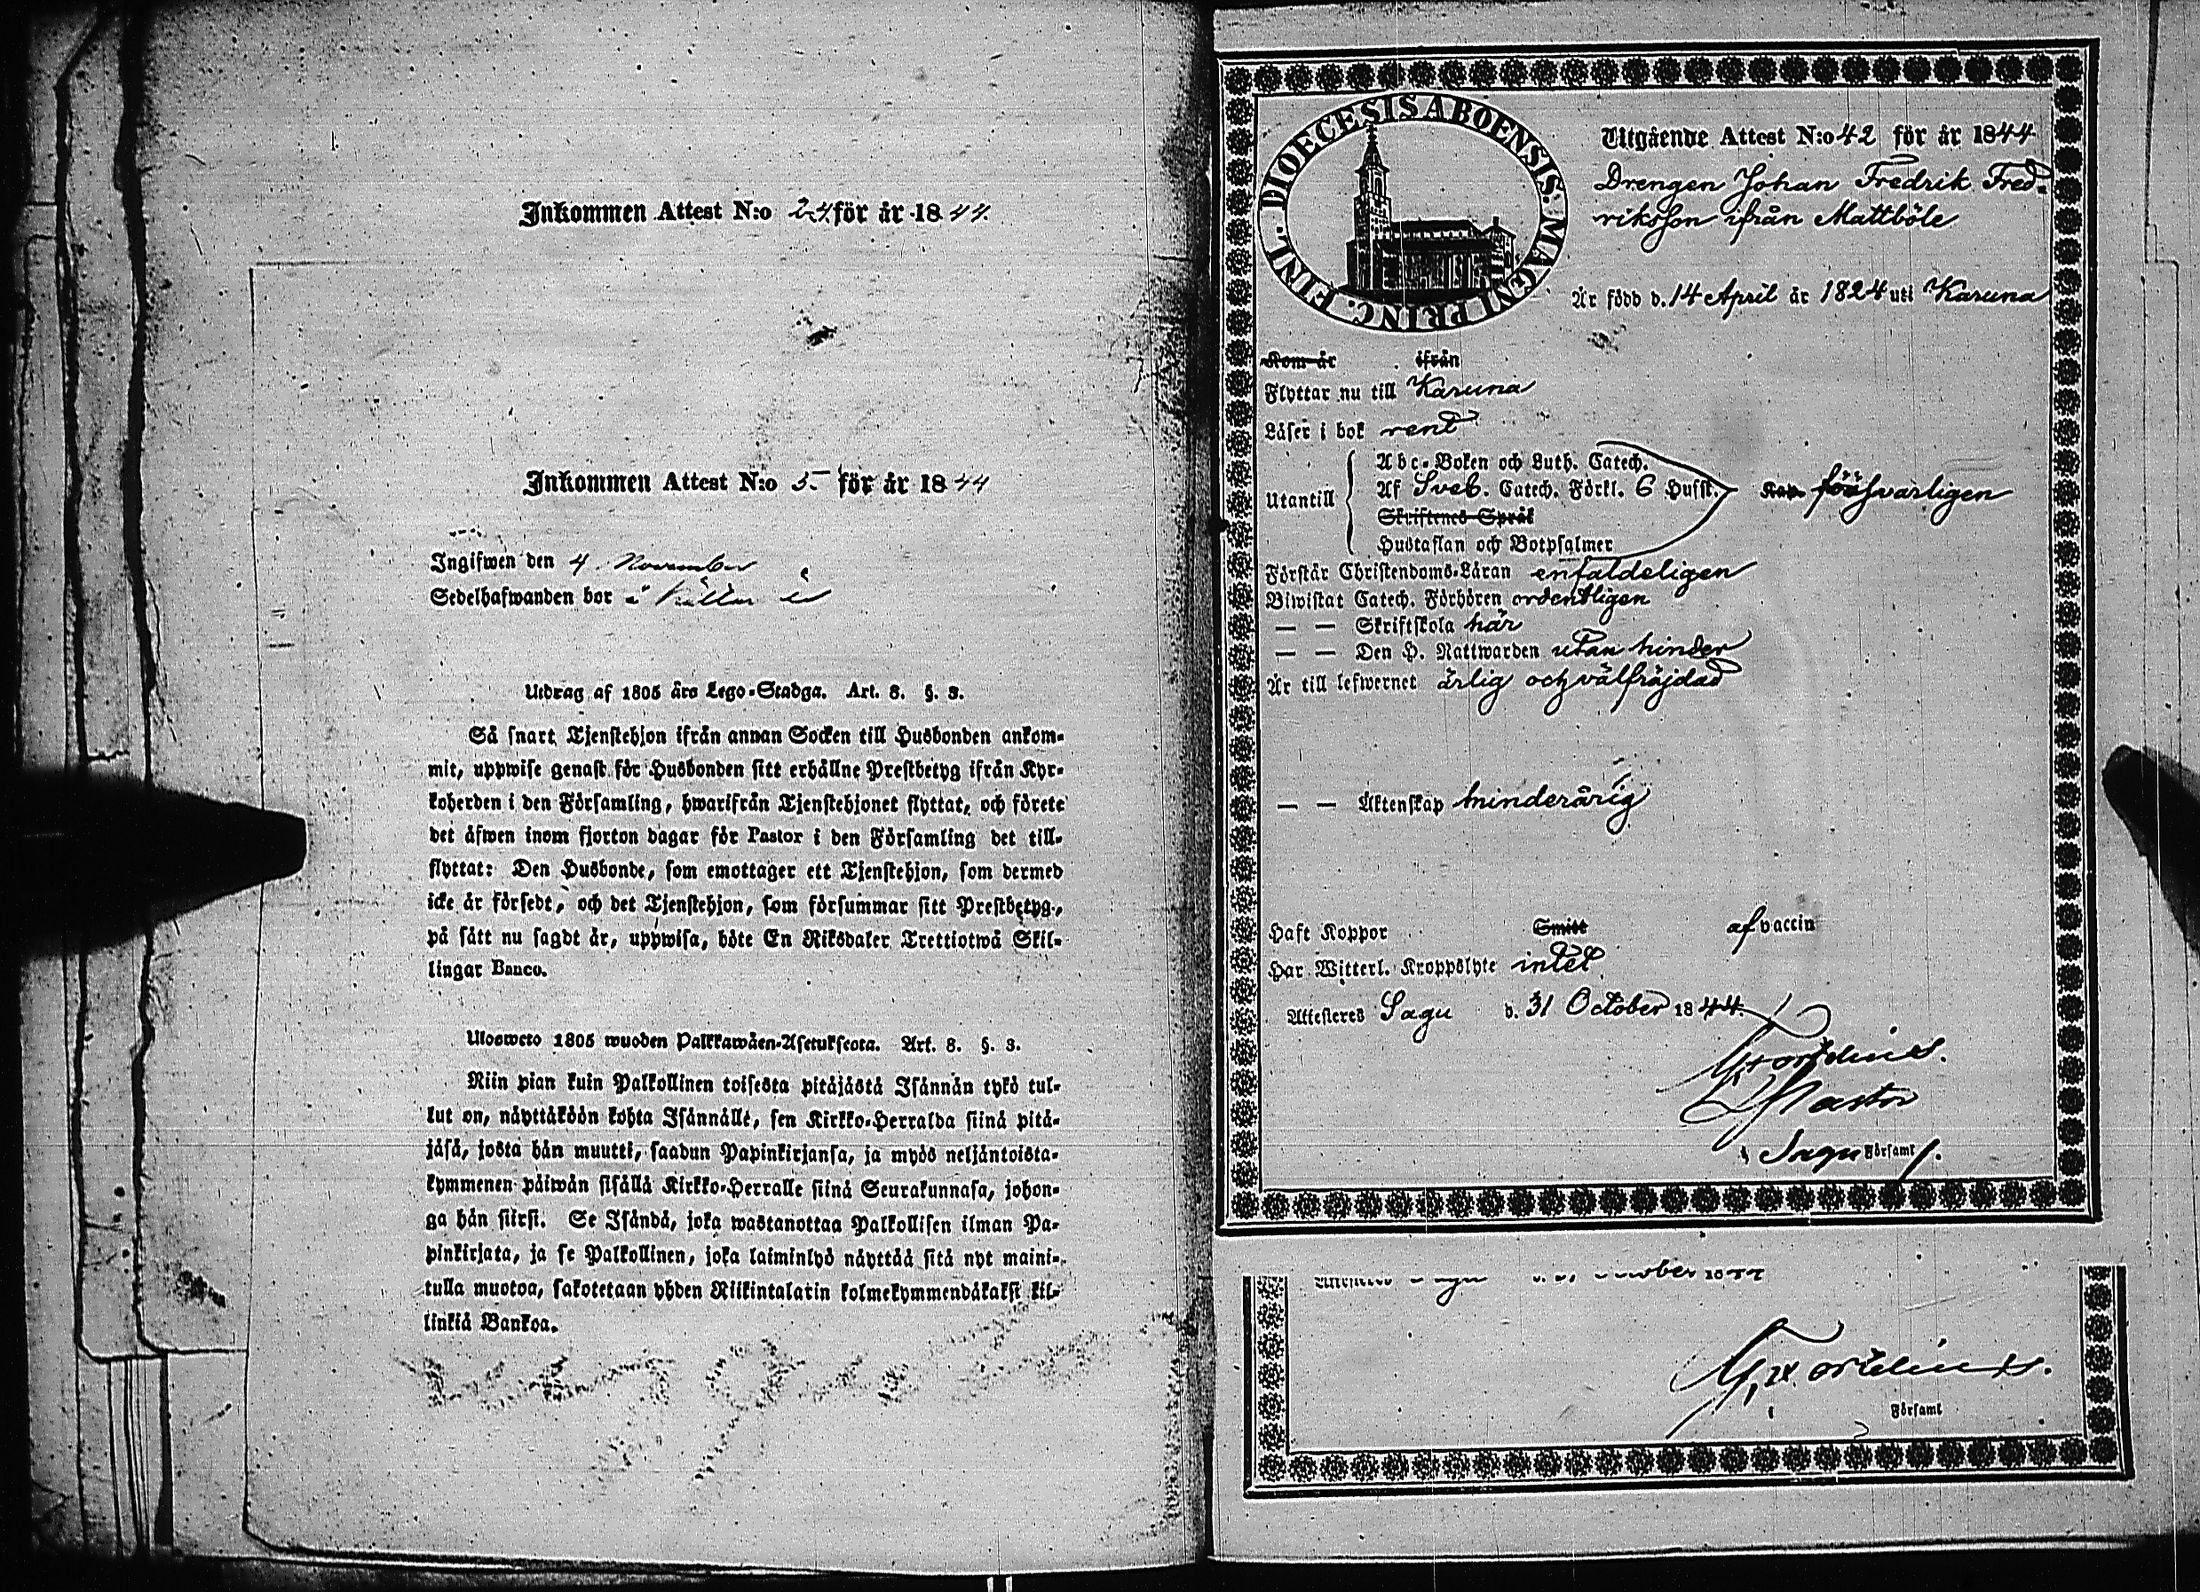 Inkommen Attest N:o 24. för år 1844.
Inkommen Attest N:o 5 för år 1844
Ingifwen den 4 November
Sedelhafwanden bor i
Utdrag af 1805 års Lego-Stadga. Art. 8. §. 3.
Så snart Tjenstehjon ifrån annan Socken till Husbonden ankom-
mit, uppwise genast för Husbonden sitt erhållne Prestbetyg ifrån Kyr-
koherden i den Församling, hwarifrån Tjenstehjonet flyttat, och förete
det äfwen inom fjorton dagar för Pastor i den Församling det till-
flyttat: Den Husbonde, som emottager ett Tjenstehjon, som dermed
icke är försedt, och det Tjenstehjon, som försummar sitt Prestbetyg,
på sätt nu sagdt är, uppwisa, böte En Riksdaler Trettiotwå Skil-
lingar Banco.
Ulosweto 1805 wuoden Palkkawäen-Asetuksesta. Art. 8. §. 3.
Niin pian kuin Palkollinen toisesta pitäjästä Isännän tykö tul-
lut on, näyttäköön kohta Isännälle, sen Kirkko-Herralda siinä pitä-
jäsä, josta hän muutti, saadun Papinkirjansa, ja myös neljäntoista-
kymmenen päiwän sisällä Kirkko-Herralle siinä Seurakunnasa, johon-
ga hän siirsi. Se Isändä, joka wastanottaa Palkollisen ilman Pa-
pinkirjata, ja se Palkollinen, joka laiminlyö näyttää sitä nyt maini-
tulla muotoa, sakotetaan yhden Riikintalarin kolmekymmendäkaksi kil-
linkiä Bankoa.
DIOECESIS ABOENSIS. MAGNI PRINC. FINL.
Utgående Attest N:o 42 för år 1844
Drengen Johan Fredrik Fred-
riksson ifrån Mattböle
Är född d. 14 April år 1824 uti Karuna
Kom år ifrån
Flyttar nu till Karuna
Läser i bok rent
Abc-Boken och Luth. Catech.
Utantill Af Sveb. Catech. Förkl. 6 Hufst. försvarligen
Skriftenes Språk
Hustaflan och Botpsalmer
Förstår Christendoms-Läran enfaldeligen
Biwistat Catech. Förhören ordentligen
— — Skriftskola här
— — Den H. Nattwarden utan hinder
Är till lefwernet ärlig och välfräjdad
— — Äktenskap minderårig
Haft Koppor Smitt af vaccin
Har Witterl. Kroppslyte intet
Attesteras Sagu d. 31 October 1844
Pastor
i Sagu Församl.
Församl